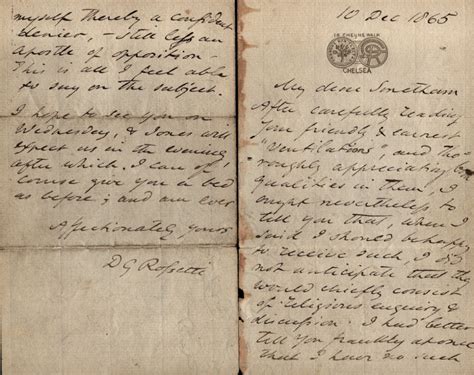 10 Dec 1865
16 CHEYNE WALK
CHELSEA
My dear Smetham
After carefully reading
your friendly & earnest
"Ventilations", and tho-
roughly appreciating
qualities in them, I
ought nevertheless to
tell you that, when I
said I should be happy
to receive such, I did
not anticipate that they
would chiefly consist
of religious enquiry &
discussion. I had better
tell you frankly at once
that I have no such
myself thereby a confident
denier, – still less an
apostle of opposition –
This is all I feel able
to say on the subject.
I hope to see you on
Wednesday, & Jones will
expect us in the evening
after which I can of
course give you a bed
as before; and am ever
Affectionately yours
D G Rossetti